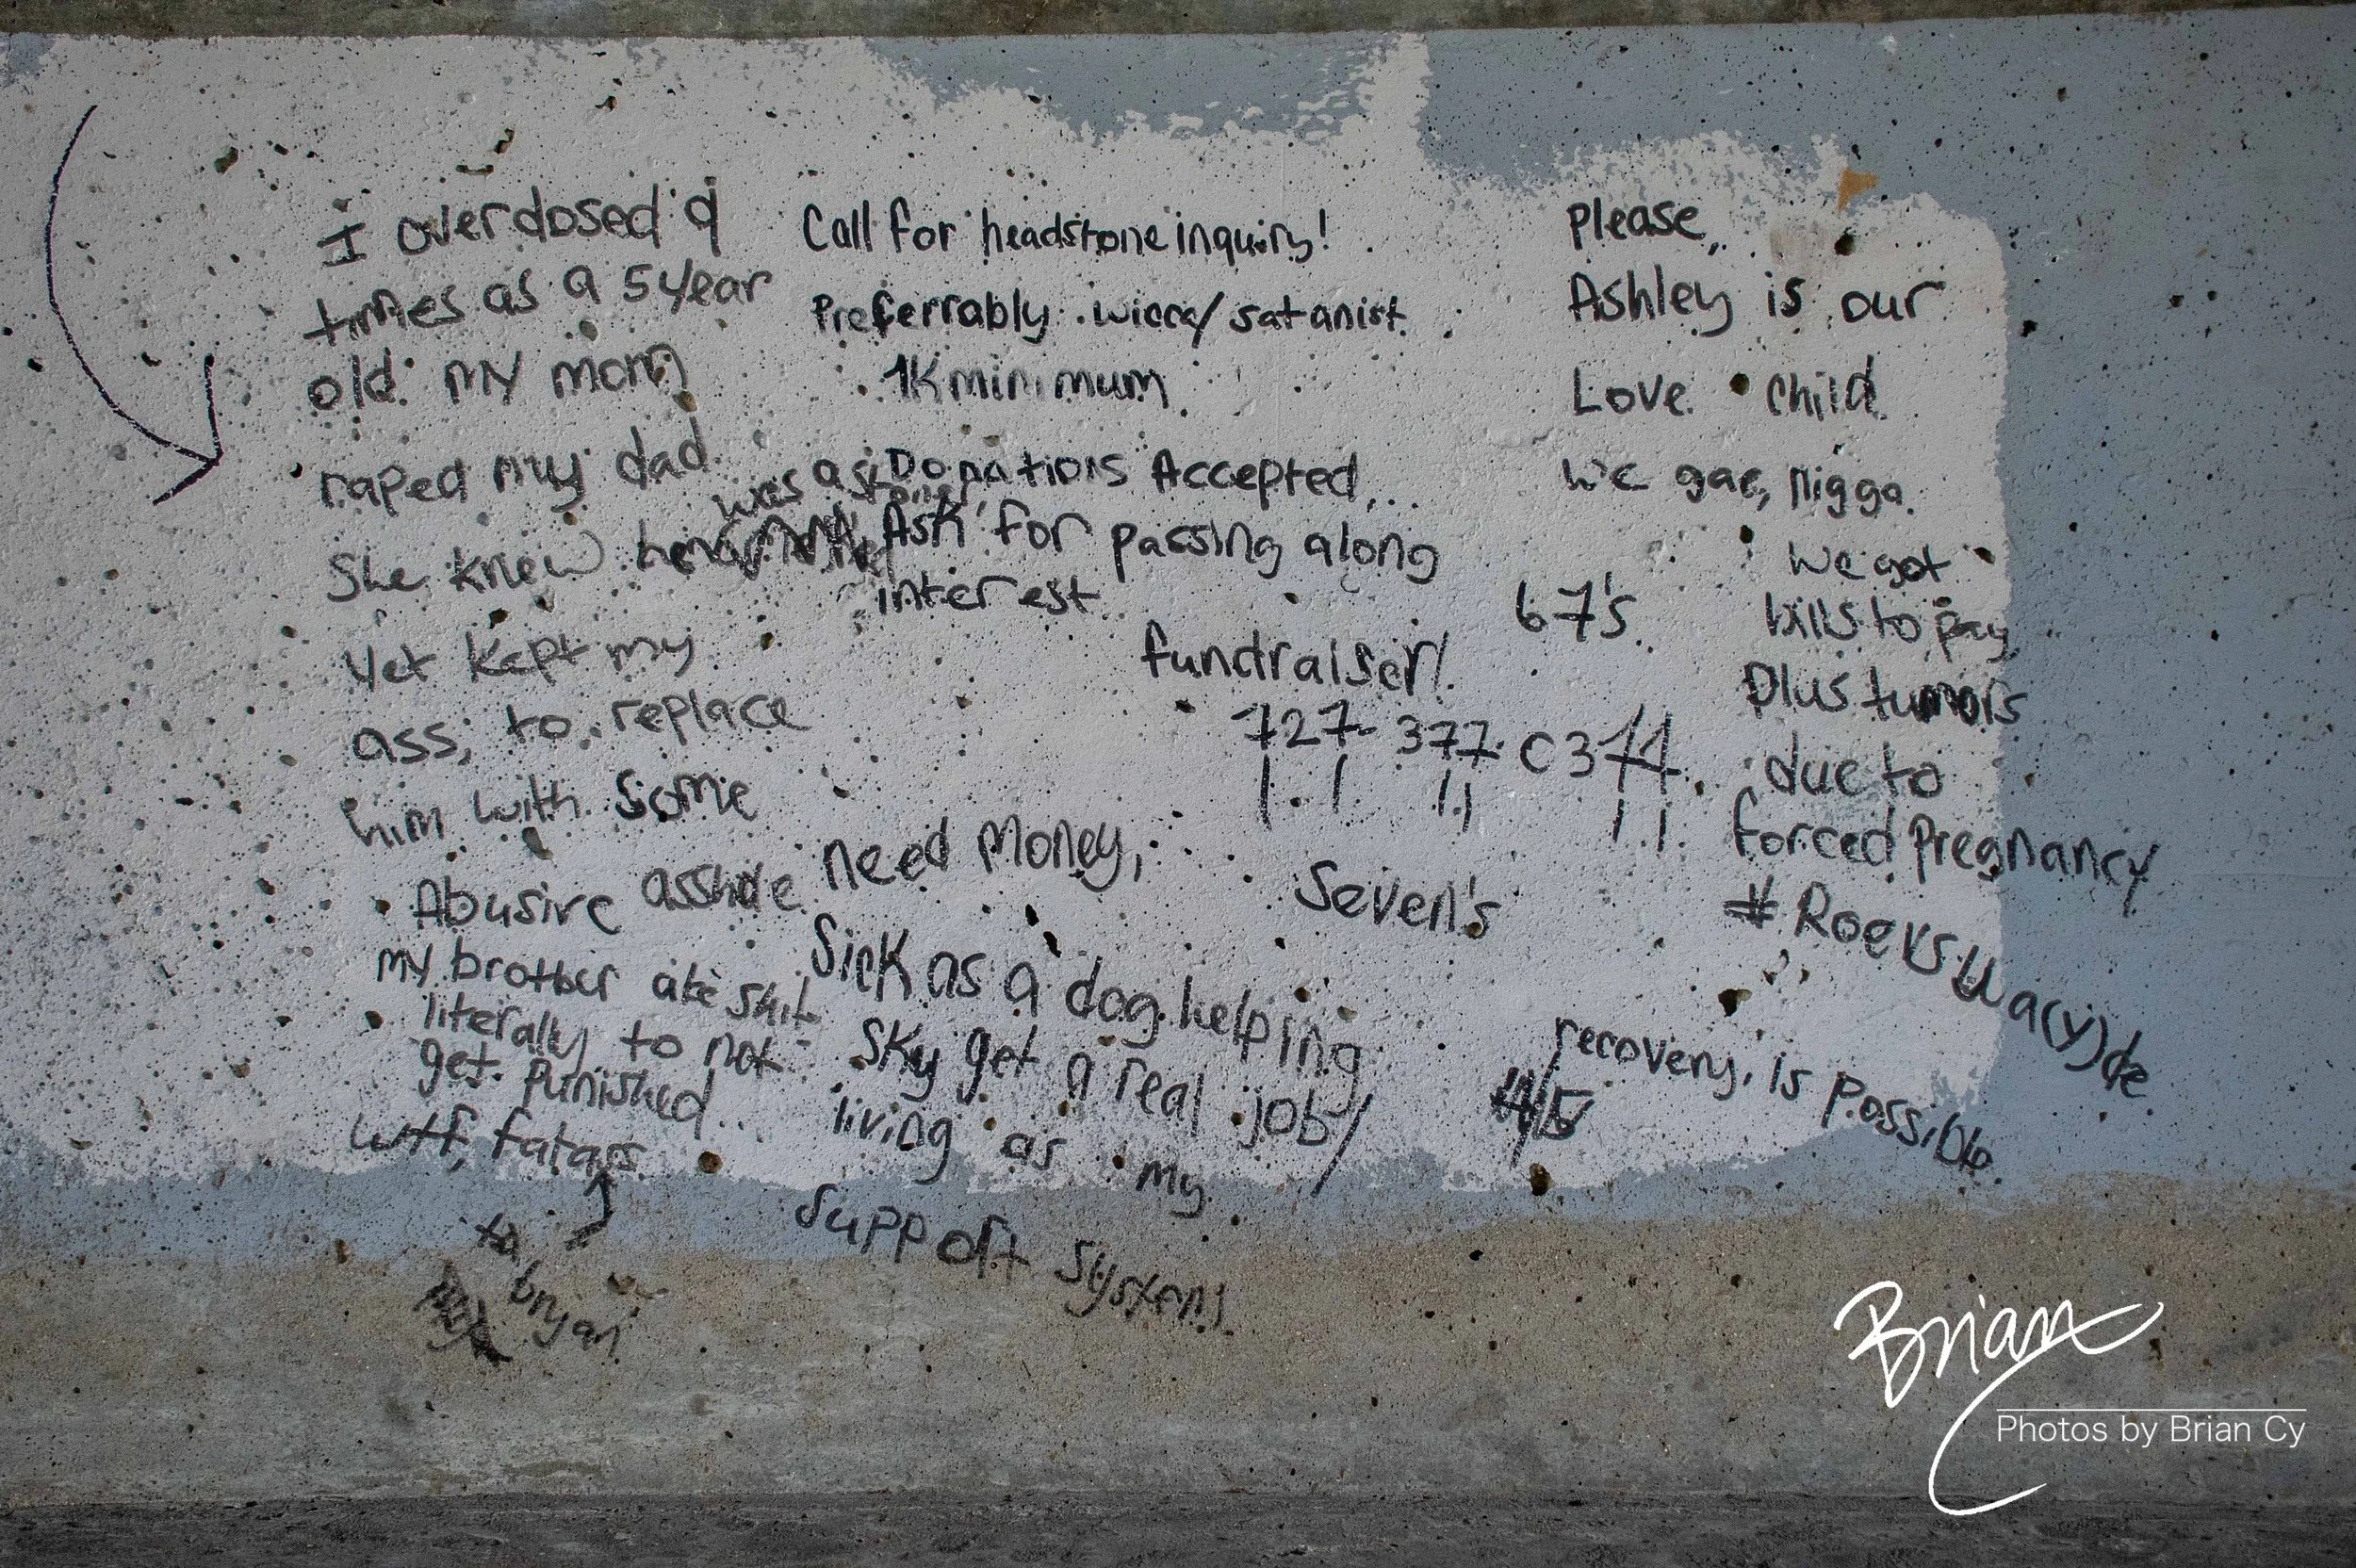 I overdosed 9
times as a 5 year
old. my mom
raped my dad.
She knew
was
yet kept my
ass, to replace
him with some
Abusive asshole
my brother ate shit
literally to not
get punished..
wtf, fatass.
to
bryan
Call for headstone inquiry!
Preferrably wicca/satanist
1K minimum
Donations Accepted...
Ask for passing along
interest
fundraiser!
67's.
727-377-C344
Seven's
need money,
Sick as a dog helping
Sky get a real job/
living as my
support system!
Please,,
Ashley is our
Love child
We gae, nigga.
We got
bills to pay
Plus tumors
due to
forced Pregnancy
#Roevswa(y)de.
recovery, is possible
Brian
Photos by Brian Cy